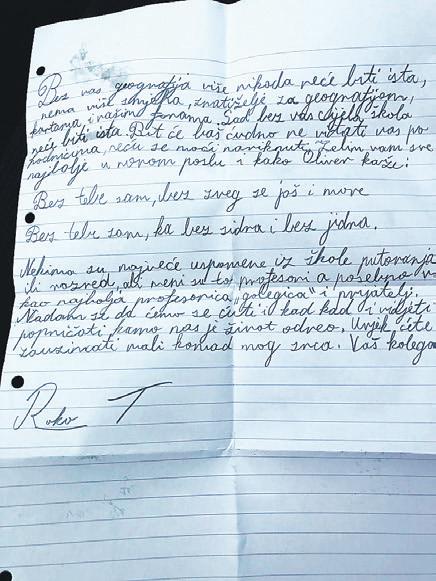 Bez vas geografija više nikada neće biti ista,
nema više smjeha, znatiželje za geografijom,
kartama i našim forama. Sad bez vas cijela škola
neće biti ista. Bit će baš čudno ne viđati vas po
hodnicima, neću se moći naviknut. Želim vam sve
najbolje u novom poslu i kako Oliver kaže:
Bez tebe sam, bez sveg se još i more
Bez tebe sam, ka bez sidra i bez jidra.
Nekima su najveće uspomene iz škole putovanja
ili razred, ali meni su to profesori a posebno
kao najbolja profesorica, "golegica" i prijatelj.
Nadam se da ćemo se čuti i kad kad i vidjeti
popričati kamo nas je život odveo. Uvjek ćete
zauzimati mali komad mog srca. Vaš kolega
Roko T